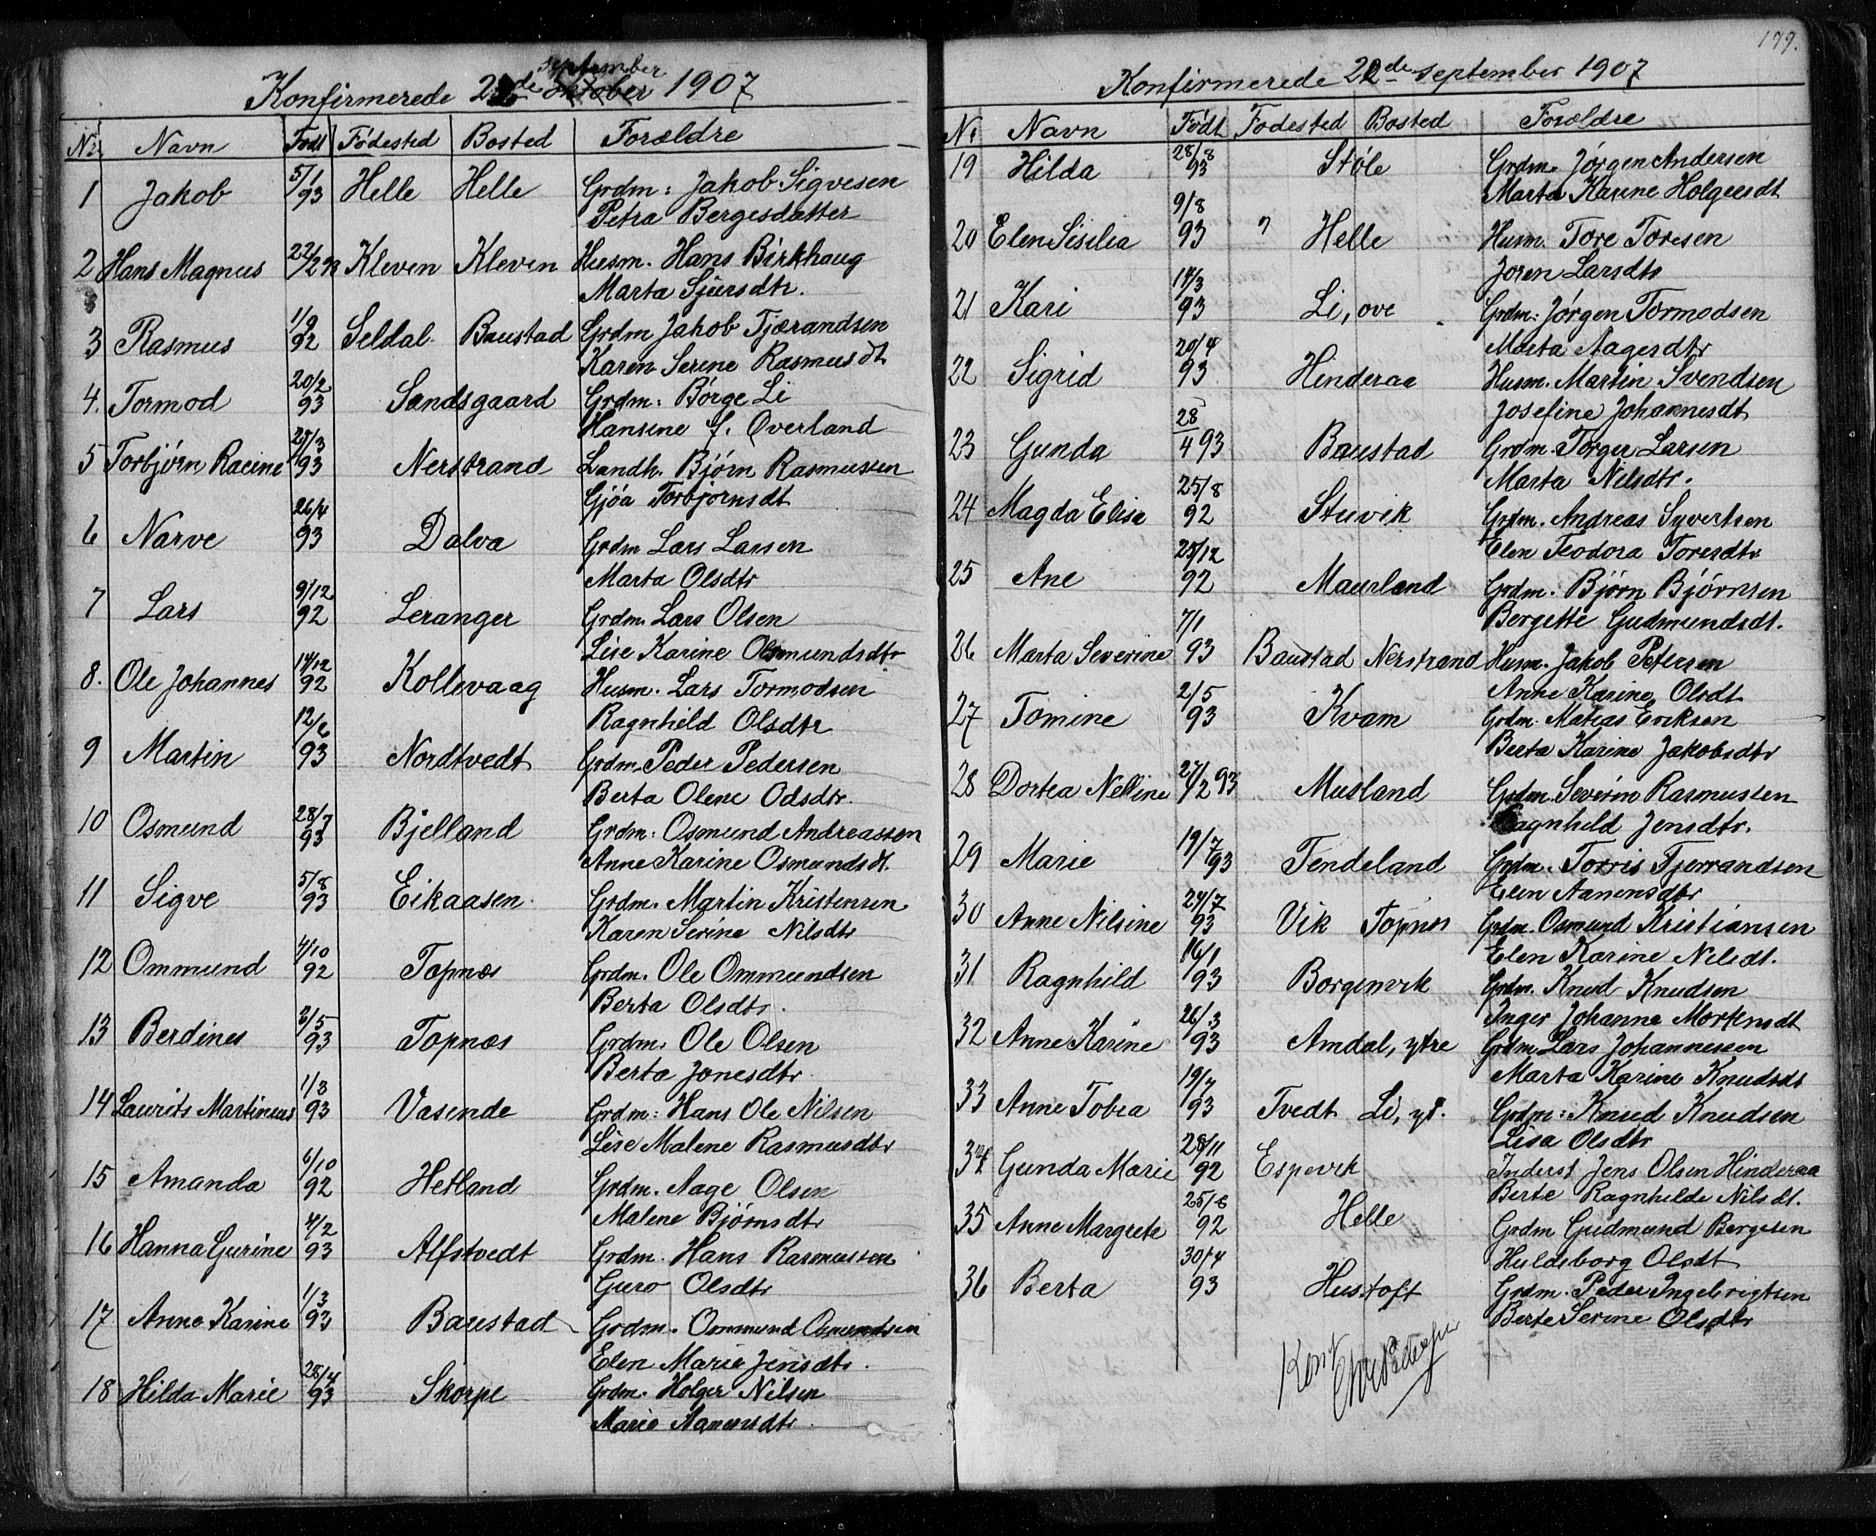 Konfirmerede 22de september oktober 1907
Nr. Navn Født Fødested Bosted Forældre
1 Jakob 5/1 93 Helle Helle Grdm: Jakob Sigvesen
Petra Bergesdatter
2 Hans Magnus 22/2 93 Kleven Kleven Husm. Hans Birkhaug
Marta Sjursdtr.
3 Rasmus 1/9 92 Seldal Baustad Grdm Jakob Tjærandsen
Karen Serine Rasmusdt
4. Tormod 20/2 93 Sandsgaard Grdm: Børge Li
Hansine f. Øverland
5 Torbjørn Racine 27/3 93 Nerstrand Landh. Bjørn Rasmussen
Gjøa Torbjørnsdt
6 Narve 26/4 93 Dalva Grdm Lars Larsen
Marta Olsdtr
7 Lars 9/12 92 Leranger Grdm. Lars Olsen
Lise Karine Osmundsdtr
8. Ole Johannes 14/12 92 Kollevaag Husm. Lars Tormodsen
Ragnhild Olsdtr
9 Martin 12/6 93 Nordtvedt Grdm. Peder Pedersen
Berta Olene Odsdtr.
10 Osmund 28/7 93 Bjelland Grdm: Osmund Andreassen
Anne Karine Osmundsdt.
11 Sigve 5/8 93 Eikaasen Grdm. Martin Kristensen
Karen Serine Nilsdtr
12 Ommund 4/10 92 Topnæs Grdm. Ole Ommundsen
Berta Olsdtr.
13 Berdines 2/5 93 Topnæs Grdm. Ole Olsen
Berta Jonesdtr.
14 Laurits Martinius 1/3 93 Vasende Grdm: Hans Ole Nilsen
Lise Malene Rasmusdtr
15 Amanda 6/10 92 Hetland Grdm. Aage Olsen
Malene Bjørnsdtr
16 Hanna Gurine 4/2 93 Alfstvedt Grdm. Hans Rasmussen
Guro Olsdtr
17 Anne Karine 1/3 93 Baustad Grdm. Ommund Osmundsen
Elen Marie Jensdtr.
18 Hilda Marie 25/4 93 Skorpe Grdm. Holger Nilsen
Marie Aanensdtr.
199.
Konfirmerede 22de september 1907
Nr Navn Født Fødested Bosted Forældre
19 Hilda 28/8 93 Støle Grdm. Jørgen Andersen
Marta Karine Holgersdt
20 Elen Sisilia 9/8 93 " Helle Husm. Tore Toresen
Joren Larsdtr
21 Kari 14/3 93 Li, øve Grdm: Jørgen Tormodsen
Marta Aagesdtr
22 Sigrid 20/4 93 Hinderaa Husm. Martin Svendsen
Josefine Johannesdt
23 Gunda 28/4 93 Baustad Grdm. Torger Larsen
Marta Nilsdtr.
24 Magda Elise 25/8 92 Stuvik Grdm. Andreas Syvertsen
Elen Teodora Toresdtr
25 Ane 25/12 92 Maurland Grdm. Bjørn Bjørnsen
Bergette Gudmundsdt.
26 Marta Severine 7/1 93 Baustad Nerstrand Husm. Jakob Petersen
Anne Karine Olsdt
27 Tomine 2/5 93 Kvam Grdm. Matias Eriksen
Berta Karine Jakobsdtr
28 Dortea Nelline 27/2 93 Musland Grdm. Severin Rasmussen
Ragnhild Jensdtr.
29 Marie 19/7 93 Tendeland Grdm. Torris Tjerrandsen
Elen Aanensdtr
30 Anne Nilsine 24/7 93 Vik Topnes Grdm. Osmund Kristiansen
Elen Karine Nilsdt.
31 Ragnhild 16/1 93 Borgenvik Grdm. Knud Knudsen
Inger Johanne Mortensdt
32 Anne Karine 26/3 93 Amdal, ytre Grdm Lars Johannessen
Marta Karine Knudsdt
33 Anne Tobea 19/7 93 Tvedt Li, yt. Grdm: Knud Knudsen
Lisa Olsdtr
34 Gunda Marie 28/11 92 Espevik Inderst Jens Olsen Hinderaa
Berte Ragnhilde Nilsdt.
35 Anne Margrete 25/8 92 Helle Grdm Gudmund Bergesen
Huldeborg Olsdt
36 Berta 30/4 93 Hustoft Grdm. Peder Ingebrigtsen
Berte Serine Olsdtr
Konf.